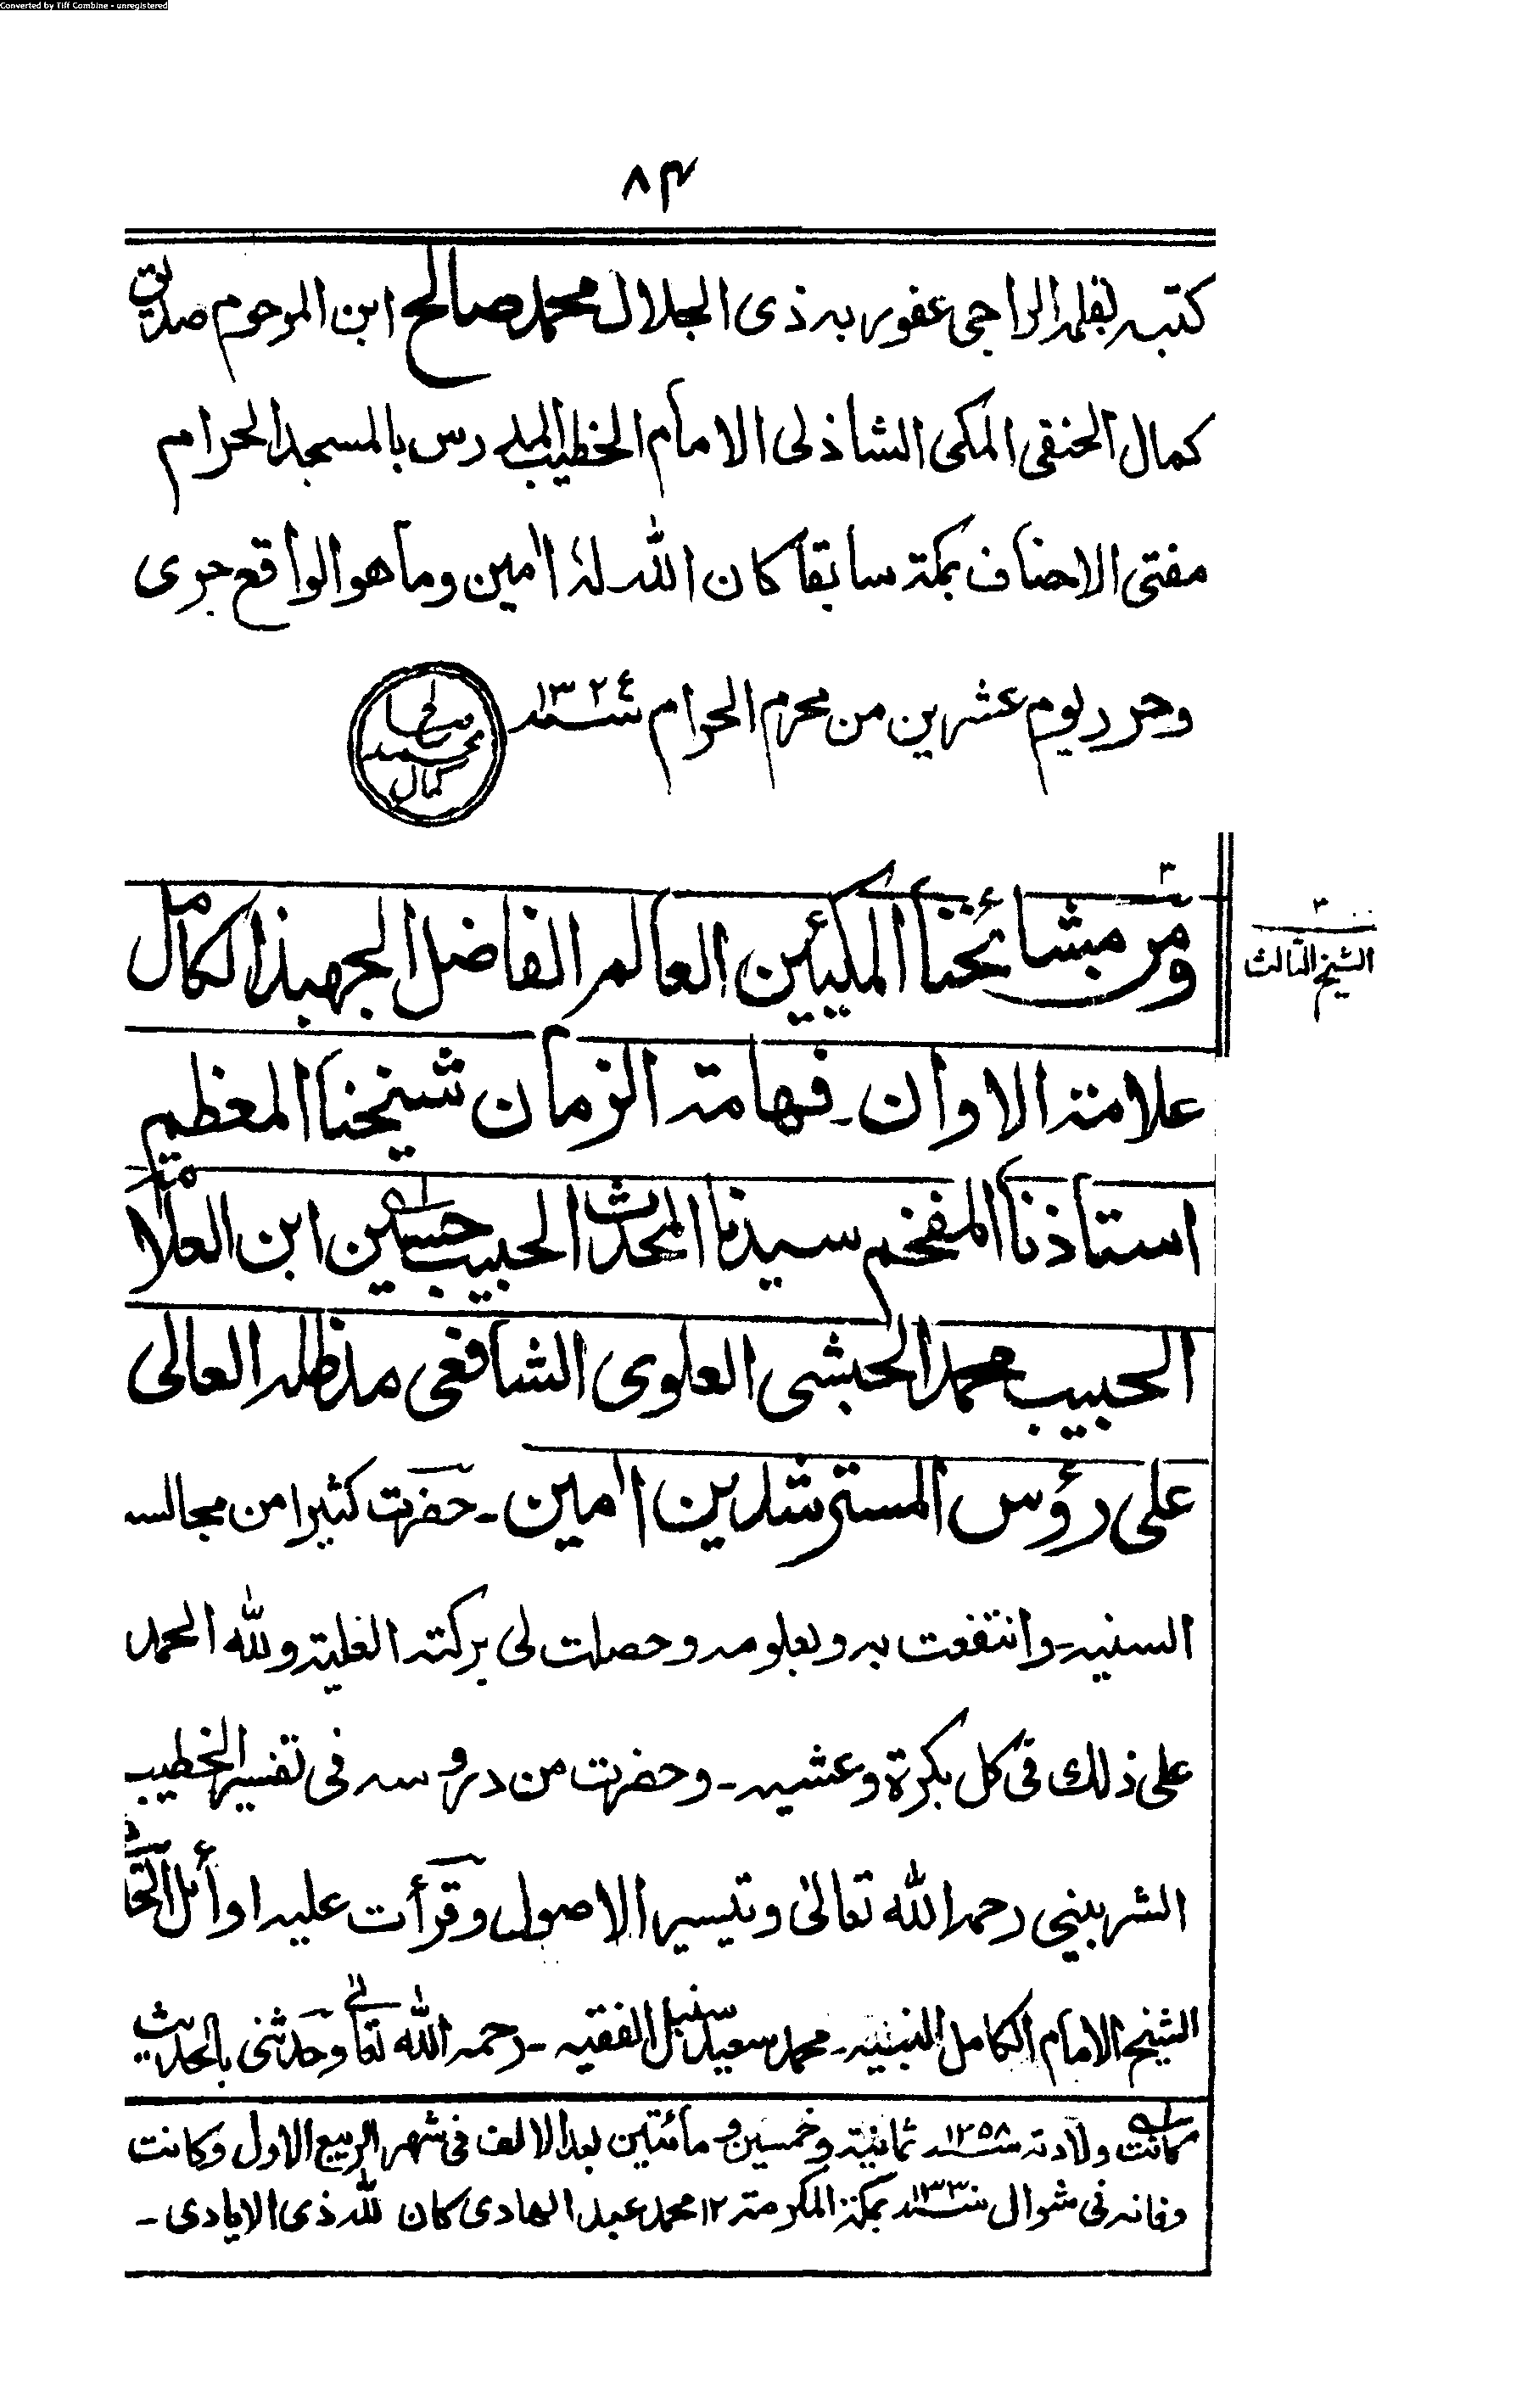 Converted by Tiff Combine - unregistered
٨٤
كتبه بقلمه الراجي عفو ربه ذى الجلال محمد صالح ابن المرحوم صديق
كمال الحنفى المكى الشاذلى الامام الخطيب المدرس بالمسجد الحرام
مفتى الاحناف بمكة سابقا كان الله لهٗ اٰمين وما هو الواقع جرى
وحرر يوم عشرين من محرم الحرام سنة ١٣٢٤
صالح محمد كمال
٣
الشيخ الثالث
ومن مشائخنا المكيين العالم الفاضل الجهبذ الكامل
علامة الاوان ـ فهامة الزمان شيخنا المعظم
استاذنا المفخم سيدنا المحدث الحبيب حسين ابن العلامة
الحبيب محمد الحبشى العلوى الشافعى مد ظله العالى
على رؤس المسترشدين اٰمين ـ حضرت كثيرا من مجالسه
السنيه ـ وانتفعت به وبعلومه وحصلت لى بركته العلية ولله الحمد
على ذلك فى كل بكرة وعشيه ـ وحضرت من دروسه فى تفسير الخطيب
الشربينى رحمه الله تعالىٰ وتيسير الاصول وقرأت عليه اوائل
الشيخ الامام الكامل النبيه ـ محمد سعيد سنبل الفقيه ـ رحمه الله تعالىٰ وحدثنى بالحديث
كانت ولادته سنة ١٢٥٨ ثمانية وخمسين ومائتين بعد الالف فى شهر الربيع الاول وكانت
وفاته فى شوال سنة ١٣٣٠ بمكة المكرمة ١٢ محمد عبد الهادى كان لله ذى الايادى ـ